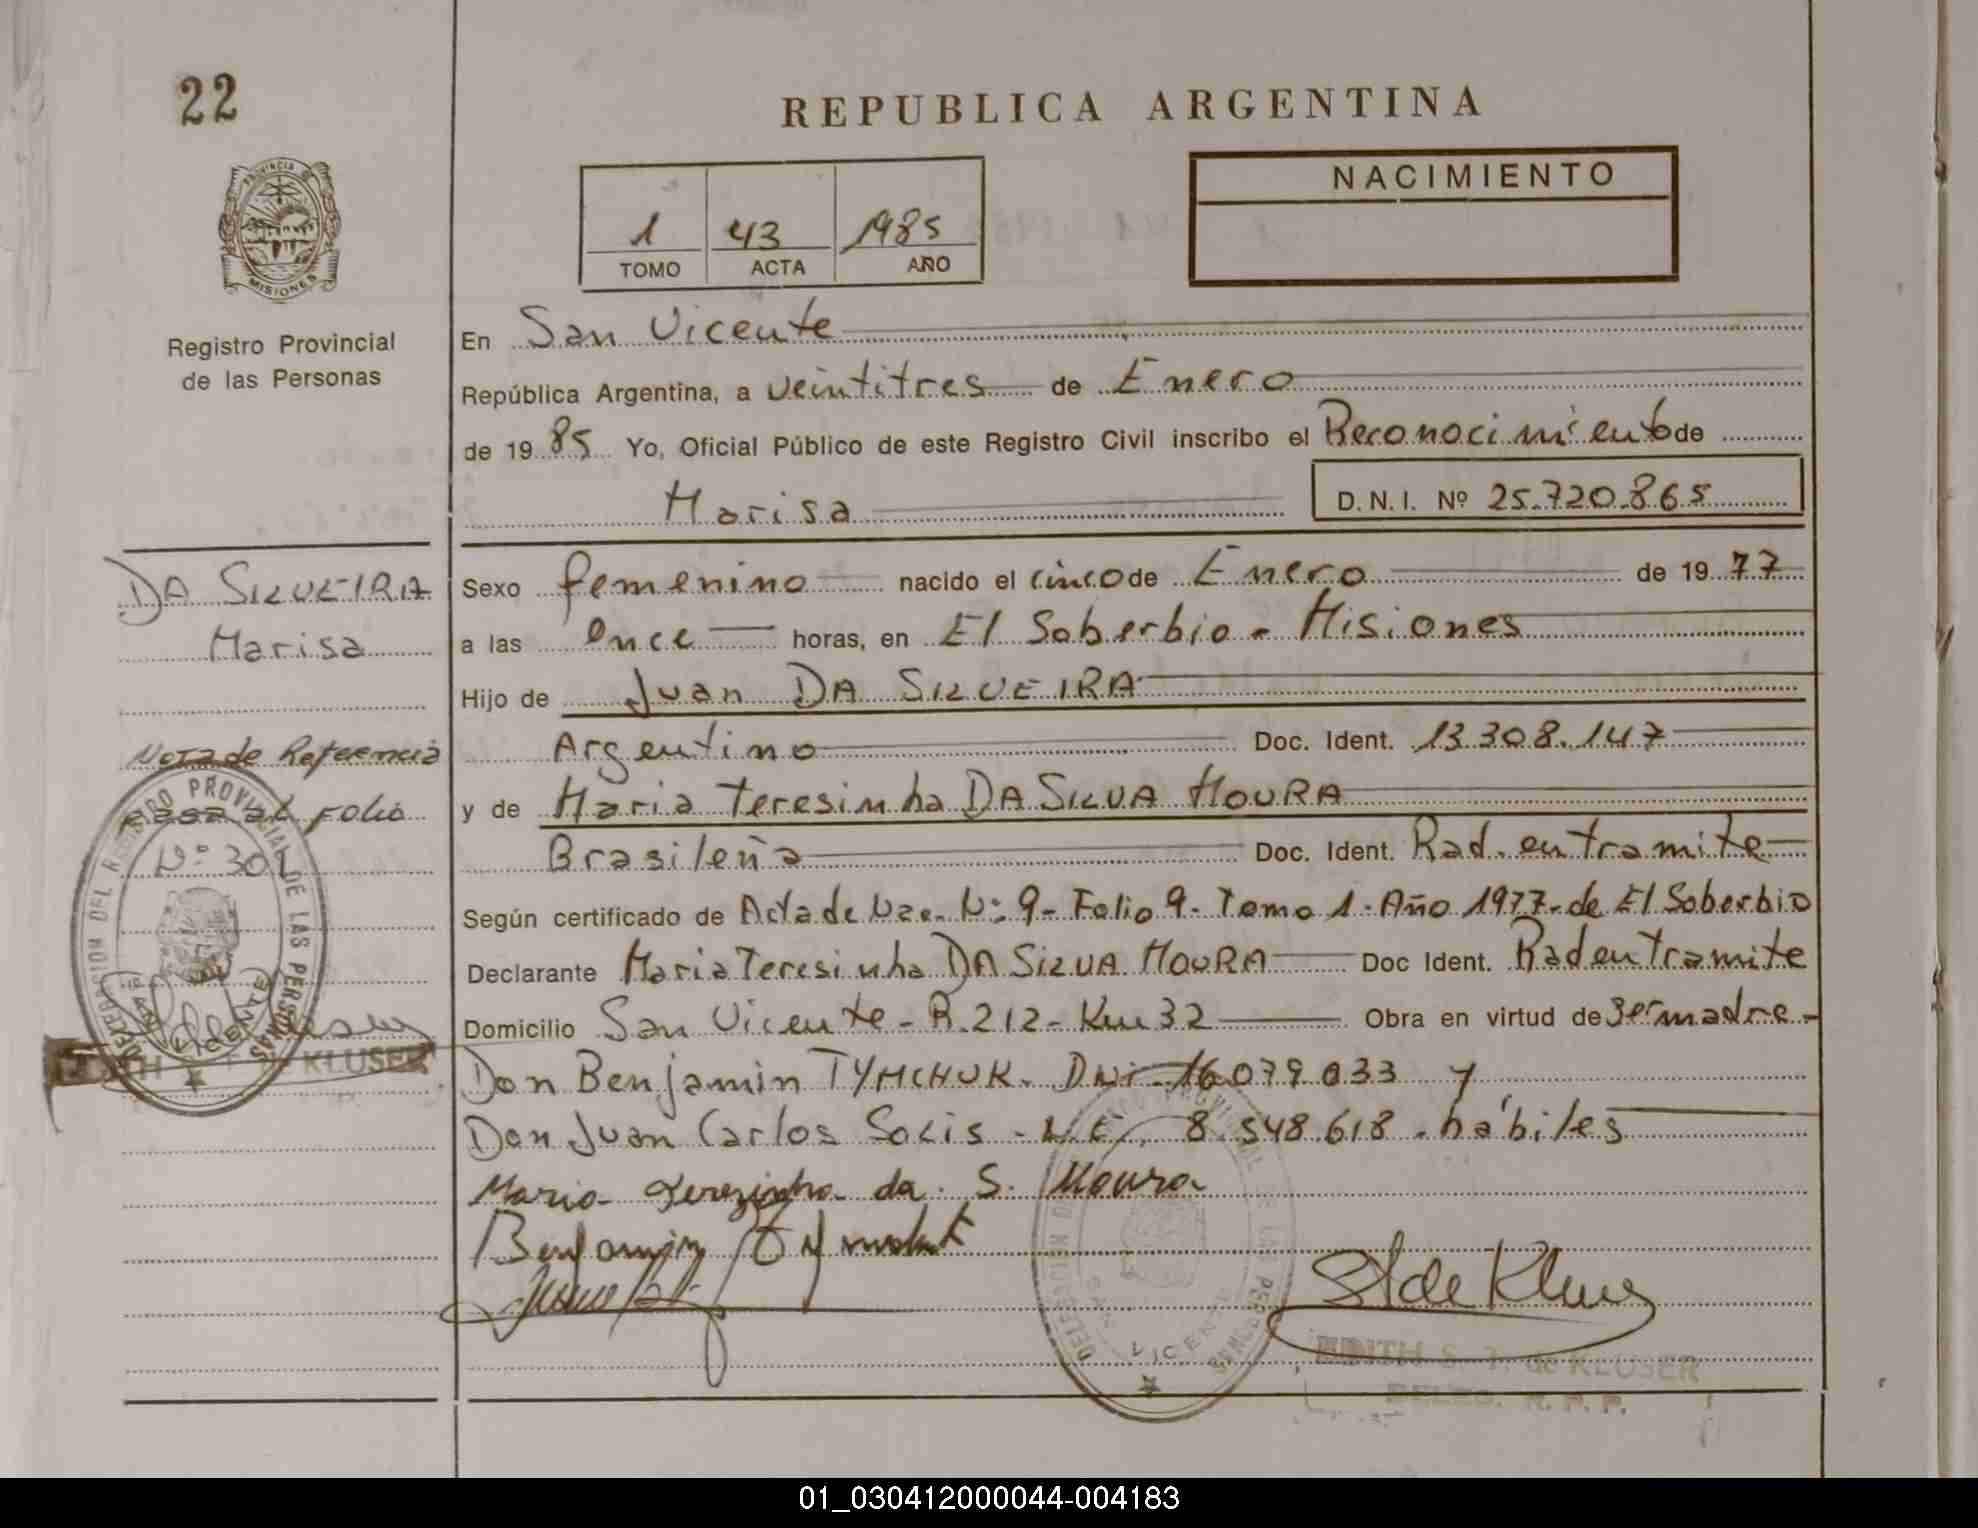 22
REPUBLICA ARGENTINA
PROVINCIA D
MISIONES
Registro Provincial
de las Personas
1 43 1985
TOMO ACTA AÑO
NACIMIENTO
En San Vicente
República Argentina, a veintitres de Enero
de 1985 Yo, Oficial Público de este Registro Civil inscribo el Reconocimiento de
Marisa D.N.I. Nº 25.720.865
DA SILVEIRA
Marisa
Nota de Referencia
pasa al Folio
Nº 301
DELEGACION DEL REGISTRO PROVINCIAL DE LAS PERSONAS
SAN VICENTE
KLUSER
Sexo femenino nacido el cinco de Enero de 1977
a las once horas, en El Soberbio - Misiones
Hijo de Juan DA SILVEIRA
Argentino Doc. Ident. 13.308.147
y de Maria Teresinha DA SILVA MOURA
Brasileña Doc. Ident. Rad. en tramite
Según certificado de Acta de Nac. Nº 9 - Folio 9 - Tomo 1 - Año 1977 - de El Soberbio
Declarante Maria Teresinha DA SILVA MOURA Doc Ident. Rad en tramite
Domicilio San Vicente - R. 212 - Km 32 Obra en virtud de ser madre -
Don Benjamin TYMCHUK. DNI - 16.079.033 y
Don Juan Carlos SOLIS - L.E. 8.548.618 - hábiles
Maria Terezinha da S. Moura
Benjamin Tymchuk
DELEGACION DEL REGISTRO PROVINCIAL DE LAS PERSONAS
SAN VICENTE
S T de Kluser
EDITH S. T. de KLUSER
DELEG. R. P. P.
01_030412000044-004183